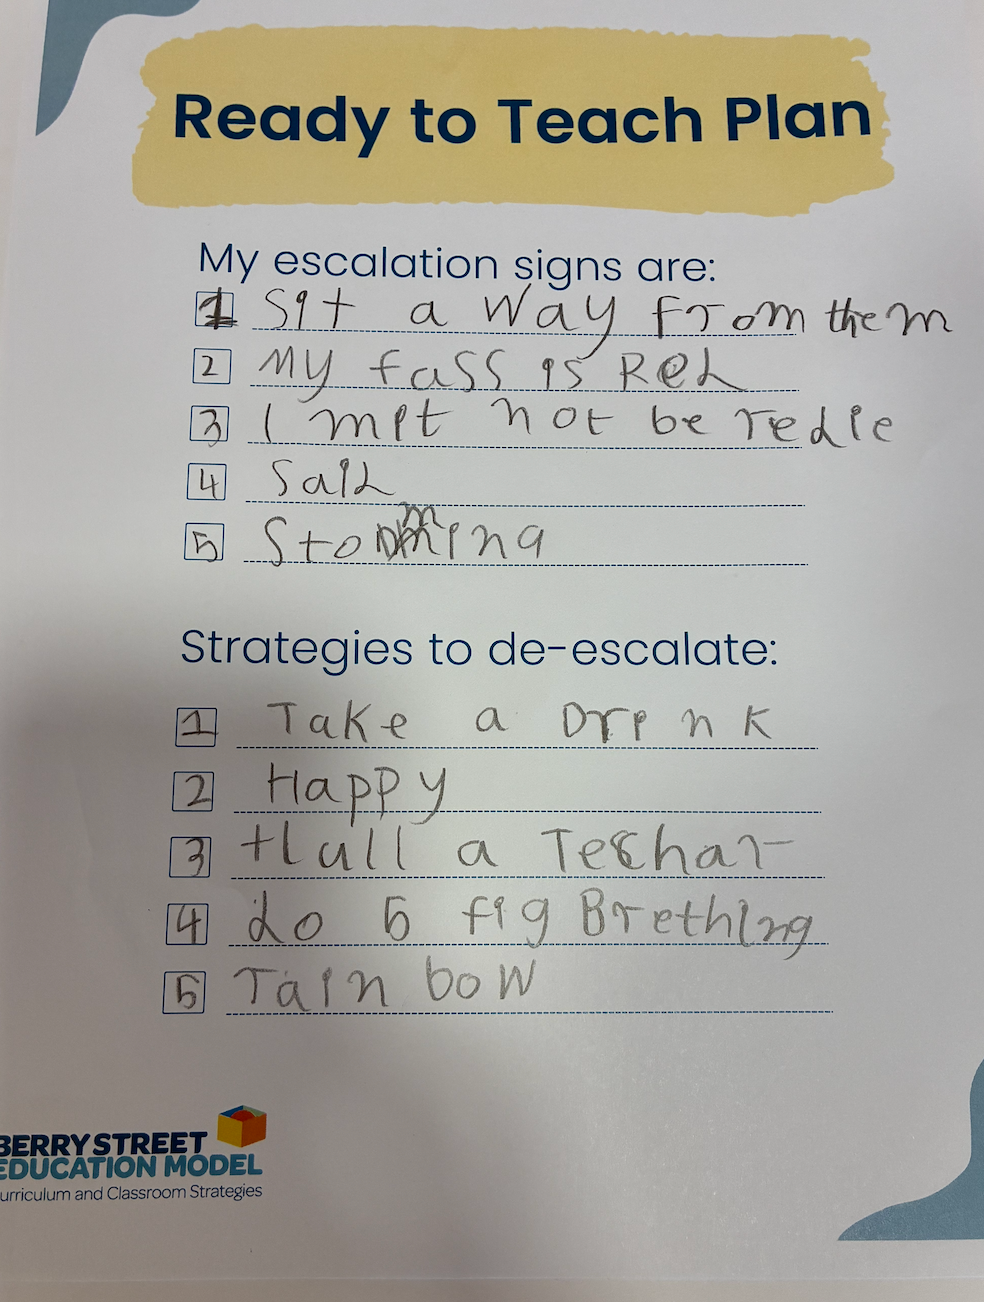 Ready to Teach Plan
My escalation signs are:
1 Sit a way from them
2 My fass is Red
3 I mit not be redie
4 Said
5 Stomming
Strategies to de-escalate:
1 Take a Drink
2 Happy
3 Hall a Techar
4 do 5 fig Brething
5 rain bow
BERRY STREET
EDUCATION MODEL
urriculum and Classroom Strategies